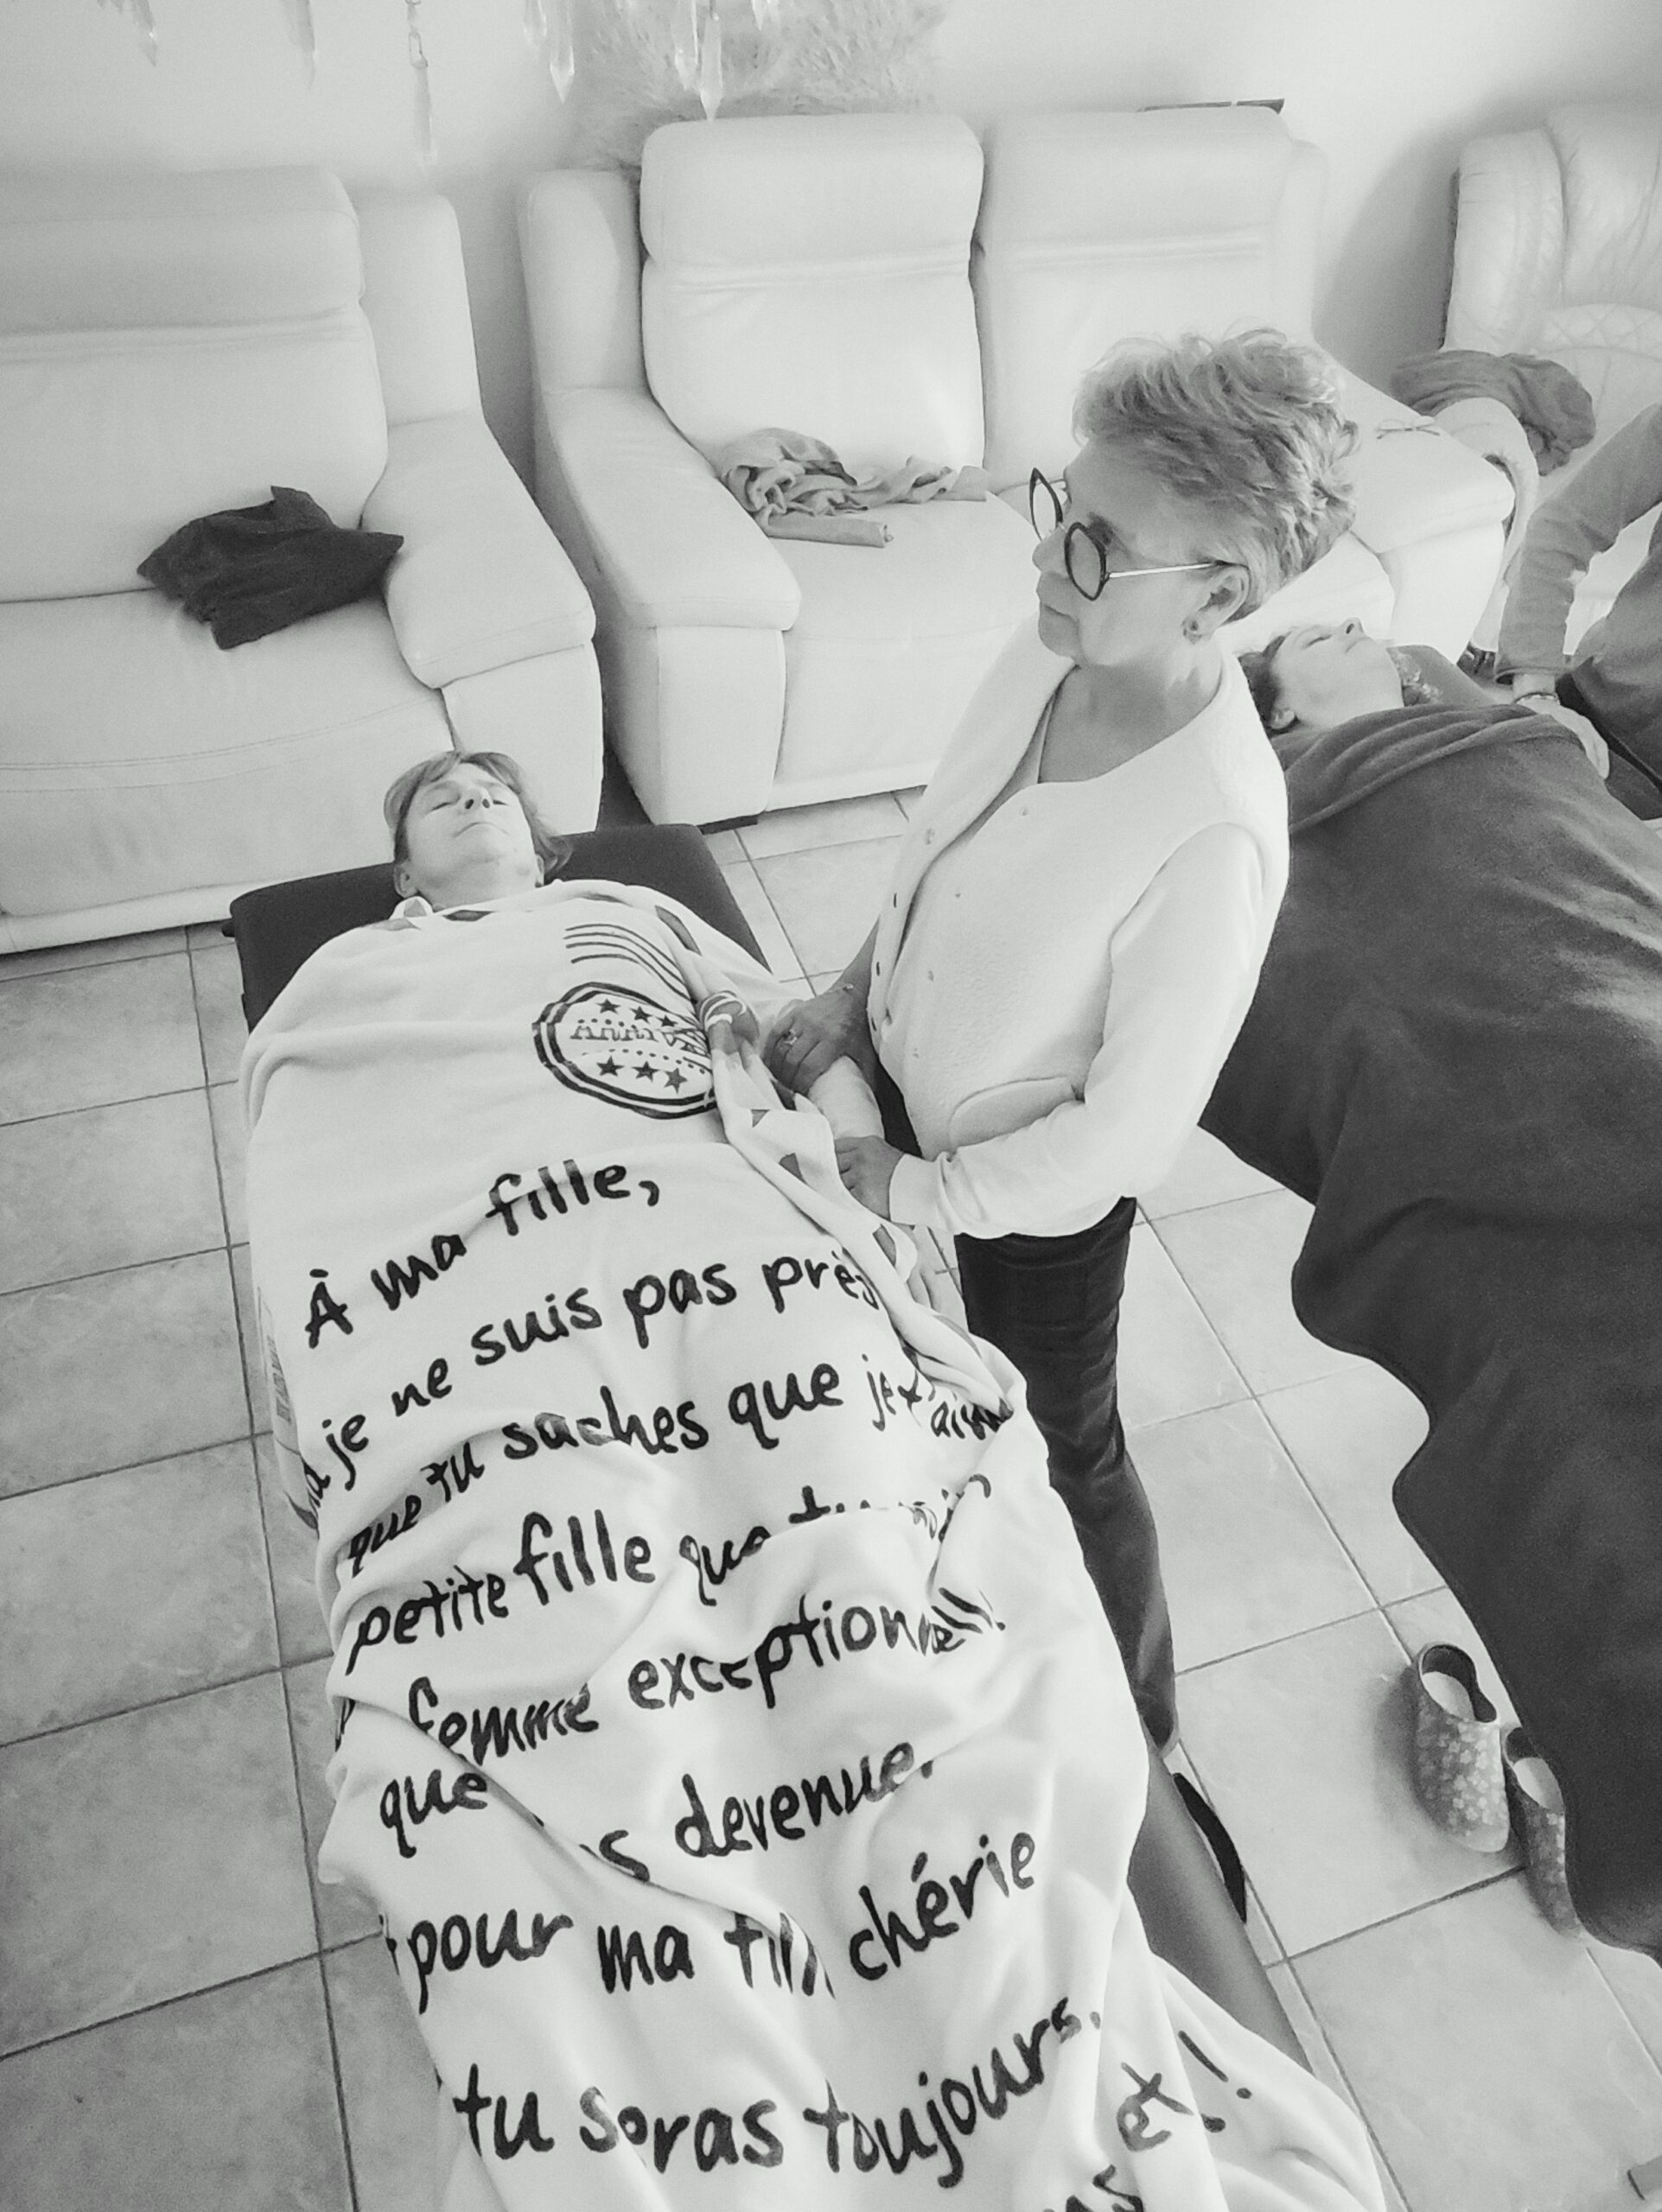 À ma fille,
je ne suis pas près
que tu saches que je t'aime
petite fille que
femme exceptionnelle
que devenue.
pour ma chérie
tu seras toujours.
et !